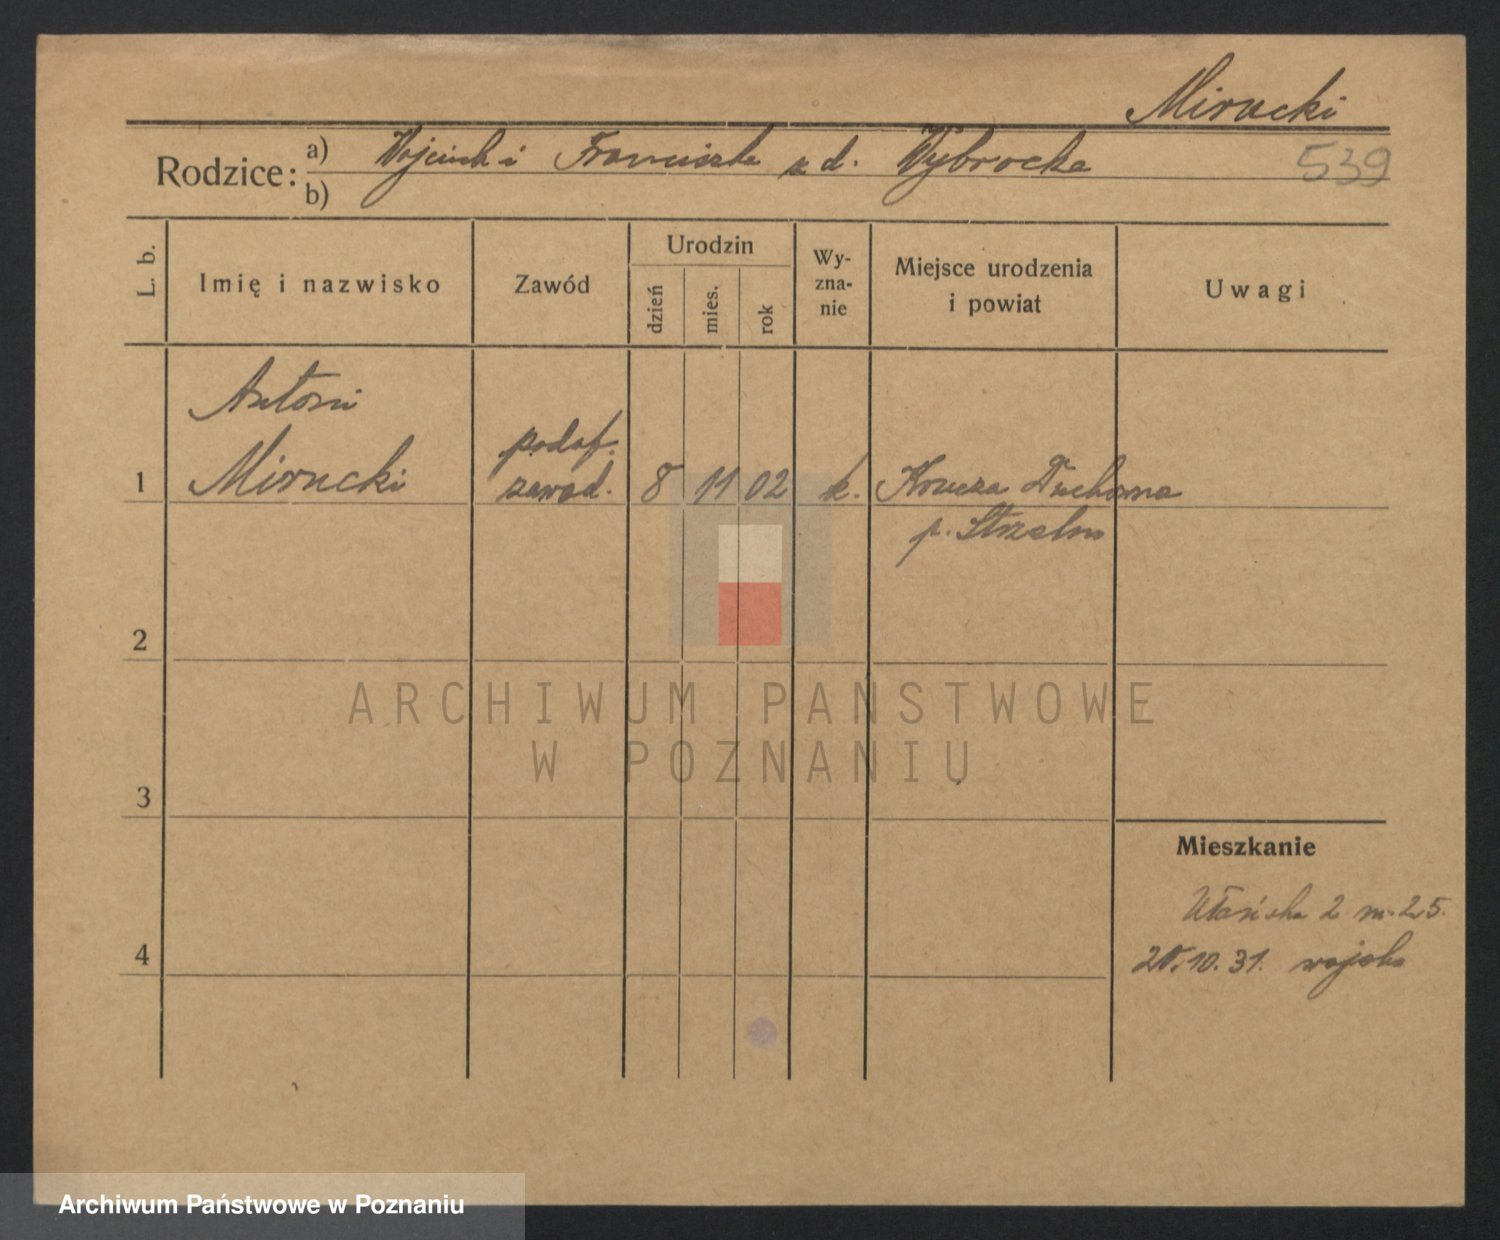 Mirucki
Rodzice: a) Wojciech i Franciszka z d. Wybrocka
b)
539
L. b.
Imię i nazwisko
Zawód
Urodzin
dzień
mies.
rok
Wy-
zna-
nie
Miejsce urodzenia
i powiat
Uwagi
Antoni
podof.
1 Mirucki zawod. 8 11 02 k. Krucza Duchowna
p. Strzelno
2
ARCHIWUM PAŃSTWOWE
W POZNANIU
3
Mieszkanie
Ułańska 2 m. 25.
4
20.10.31. wojsko
Archiwum Państwowe w Poznaniu